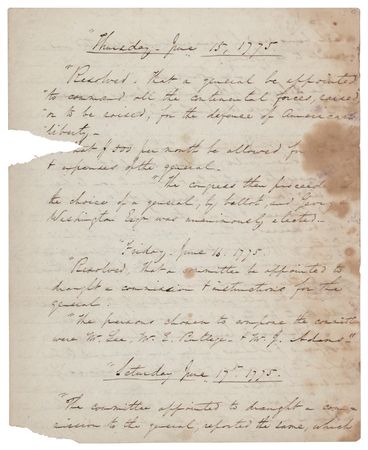 "Thursday - June 15, 1775
"Resolved, that a general be appointed
"to command all the continental forces, raised
"or to be raised, for the defense of American
liberty -
that $500 per month be allowed for
& expenses of the general -
"The congress then proceeded
the choice of a general, by ballot, and George
Washington Esqr was unanimously elected -
"Friday, June 16. 1775
"Resolved, that a committee be appointed to
draught a commission & instructions for the
general:
"The persons chosen to compose the committ
were Mr. Lee, Mr. E. Rutlege - & Mr. J. Adams"
"Saturday June 17th 1775.
"The committee appointed to draught a com-
mission to the general, reported the same, which